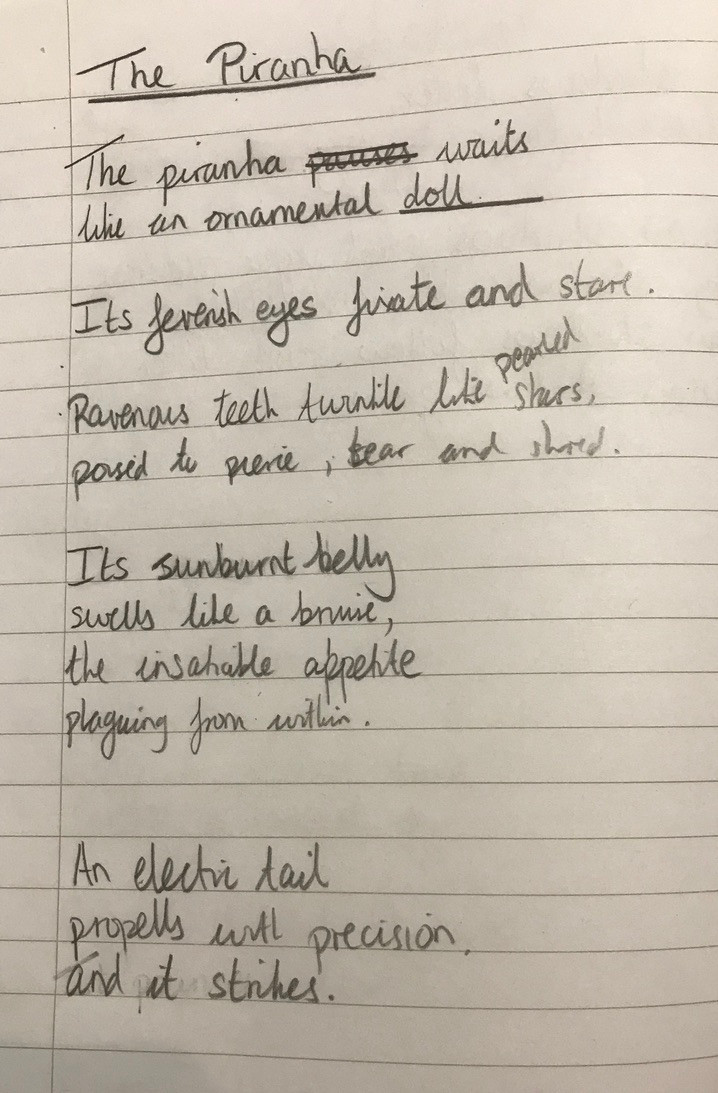 The Piranha
The piranha pauses waits
like an ornamental doll.
Its feverish eyes fixate and stare.
pearled
Ravenous teeth twinkle like stars,
poised to pierce, tear and shred.
Its sunburnt belly
swells like a bruise,
the insatiable appetite
plaguing from within.
An electric tail
propells with precision,
and it strikes.